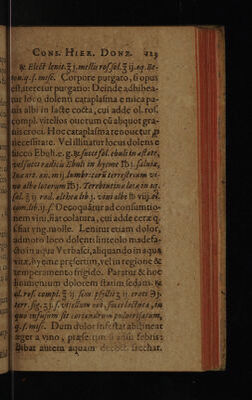 CONS. HIER. DONZ. 223
& Elect lenit. ℥ j. mellis ros. sol. ℥ ij. aq. Be-
ton. q. s. misc. Corpore purgato, si opus
est, iteretur purgatio: Deinde adhibea-
tur loco dolenti cataplasma e mica pa-
nis albi in lacte cocta, cui adde ol. ros.
compl. vitellos ouorum cũ aliquot gra-
nis croci. Hoc cataplasma renouetur
necessitate. Vel illinatur locus dolens
succo Ebuli. e. g. ℞ succi fol. ebuli in æstate,
vel succi radicis Ebuli in hyeme ℔ j. saluiæ,
Iuæ art. an. m ij. lumbricorũ terrestrium vi-
no albo lotorum ℔ j. Terebintinæ lotæ in aq.
sal. ℥ ij rad. altheæ lib j. vini albi ℔ viij. ol.
com. lib. ij. s. Decoquãtur ad consumtio-
nem vini, fiat colatura, cui adde ceræ q.
s. fiat vng. molle. Lenitur etiam dolor,
admoto loco dolenti linteolo madefa-
cto in aqua Verbasci, aliquando in aqua
vitæ, hyeme præsertim, vel in regione &
temperamento frigido. Paratur & hoc
linimentum dolorem statim sedans. ℞
ol. ros. compl. ℥ ij
terr. sig. ʒ j. s. vitellum
quo infusum sit coriandrum puluerisatum,
q. s. misc. Dum dolor infestat abstineat
æger a vino, præsertim si adsit febris:
Bibat autem aquam decoct.